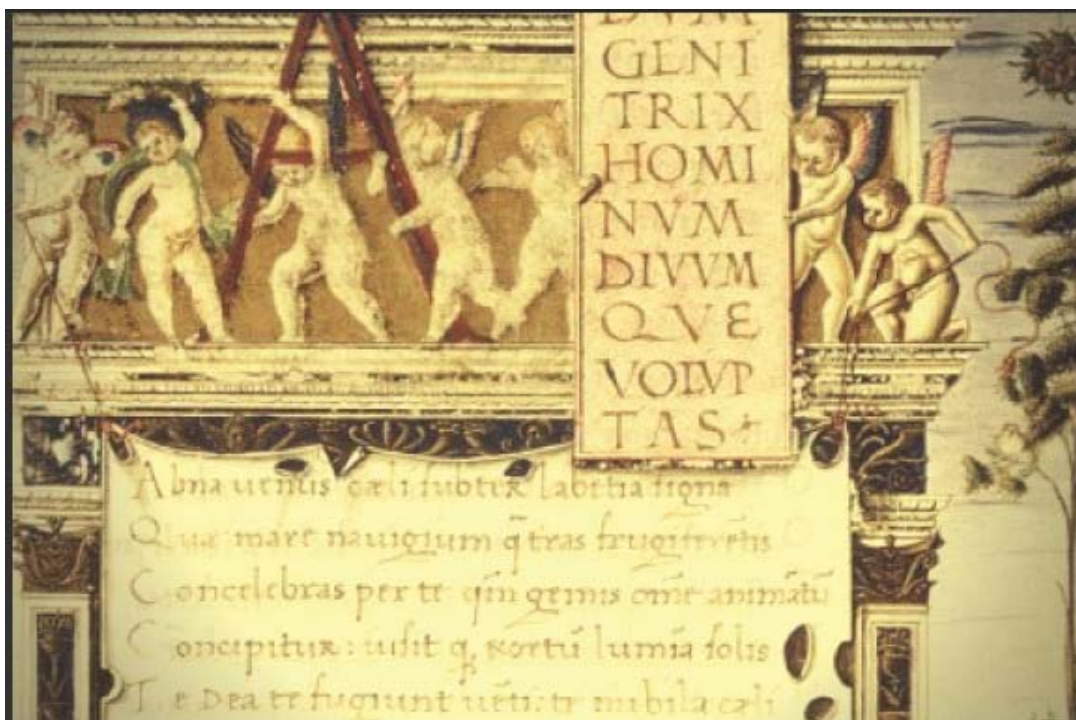 DVM
GENI
TRIX
HOMI
NVM
DIVVM
QVE
VOLVP
TAS
Alma uenus cæli subter labētia signa
Quæ mare nauigium q̄ tras frugiferētis
Concelebras per te qm̄ genus om̄e animātū
Concipitur: uisit q; exortū lumīa solis
Te Dea te fugiunt uēti: te nubila cæli